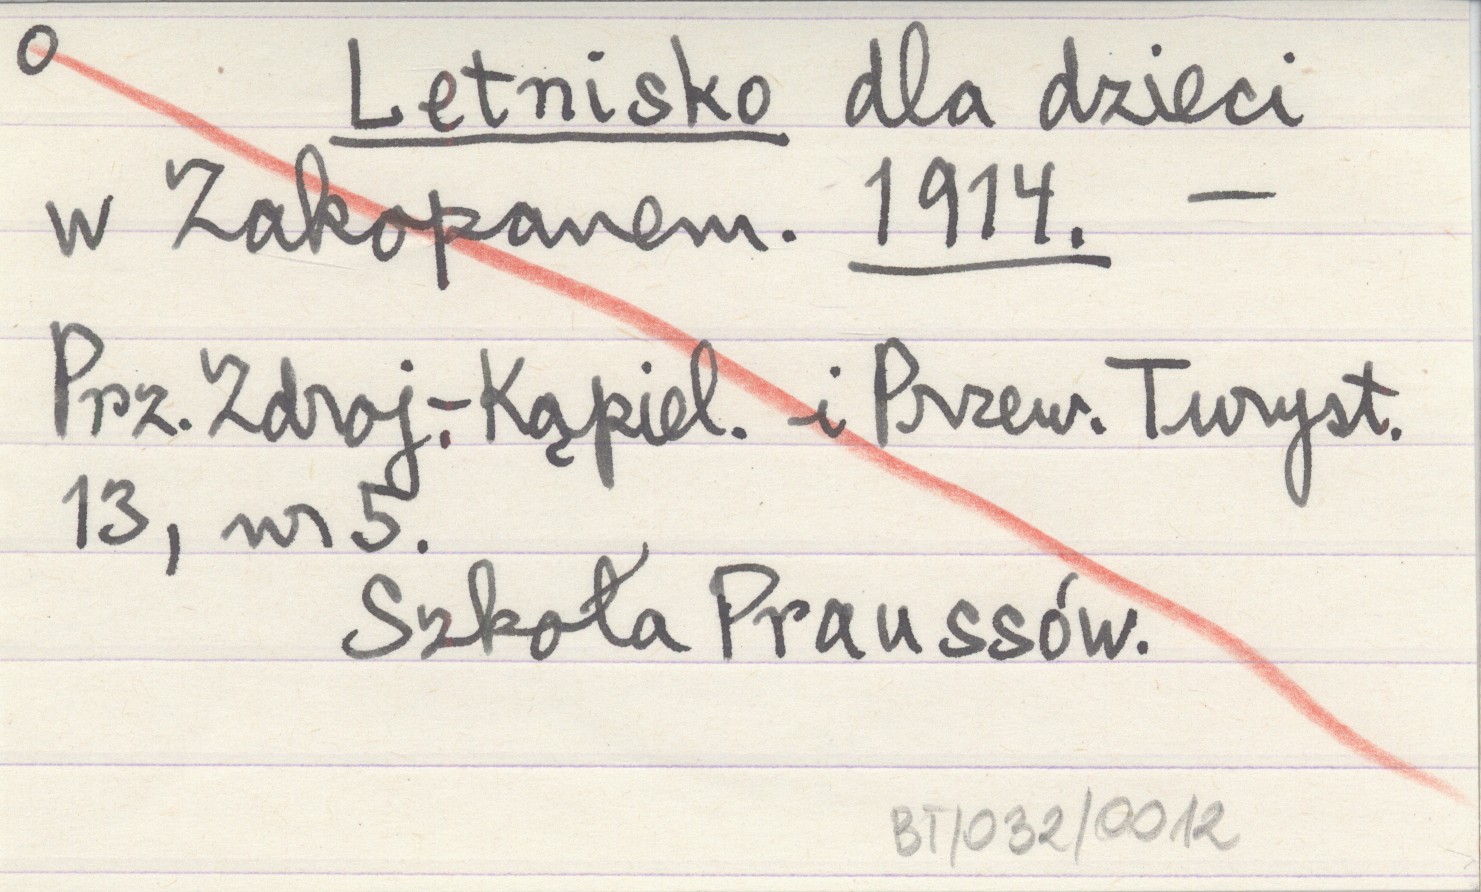 o
Letnisko dla dzieci
w Zakopanem. 1914. —
Prz. Zdroj.-Kąpiel. i Przew. Turyst.
13, nr 5.
Szkoła Praussów.
BT/032/0012